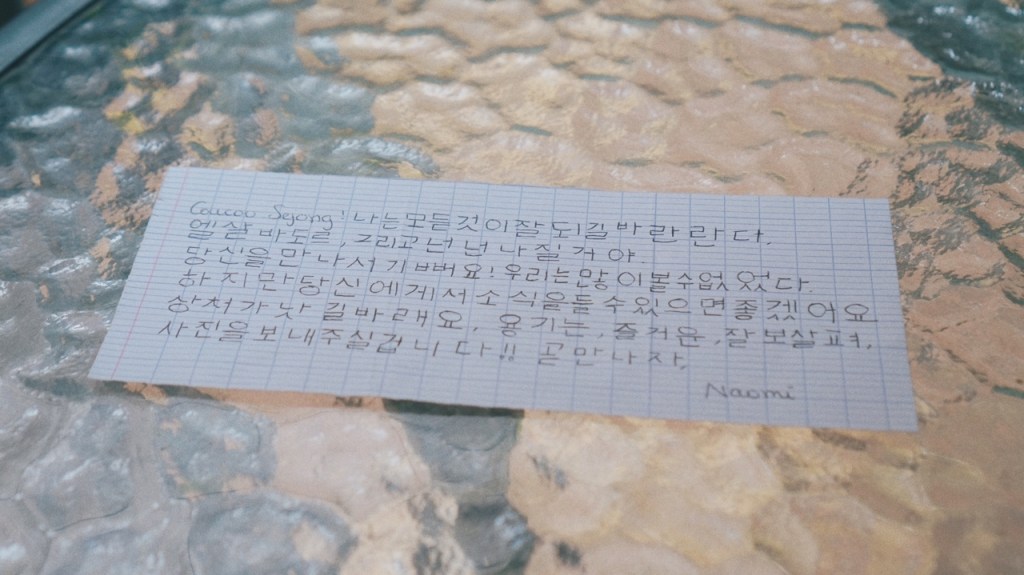 Coucou Sejong! 나는 모든 것이 잘 되길 바란란다.
엘살바도르, 그리고 넌 넌 나질 거야.
당신을 만나서 기뻐요! 우리는 많이 볼 수 없었다.
하지만 당신에게서 소식을 들 수 있으면 좋겠어요
상처가 낫길 바래요, 용기는, 즐거운, 잘 보살펴,
사진을 보내주실겁니다!! 곧 만나자,
Naomi